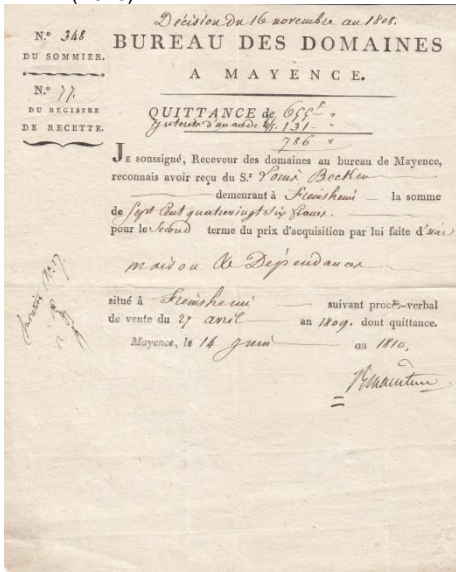 Décision du 16 novembre an 1808.
N.º 348
DU SOMMIER.
N.º 77.
DU REGISTRE
DE RECETTE.
BUREAU DES DOMAINES
A MAYENCE.
QUITTANCE de 655 f "
Interets d'un an de 131 – "
786 "
JE soussigné, Receveur des domaines au bureau de Mayence,
reconnais avoir reçu du S.r Louis Becker
demeurant à Freinsheim la somme
de Sept Cent quatrevingt Six francs.
pour le Second terme du prix d'acquisition par lui faite d'une
maison & Dépendances
situé à Freinsheim suivant procès-verbal
de vente du 27 avril an 1809. dont quittance.
Mayence, le 14 juin an 1810.